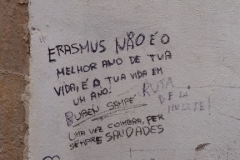 ERASMUS NÃO É O
MELHOR ANO DE TUA
VIDA, É A TUA VIDA EM
UM ANO.
RUTA
DE LA
RUBEN
UMA VEZ COIMBRA, PER
SEMPRE SAUDADES